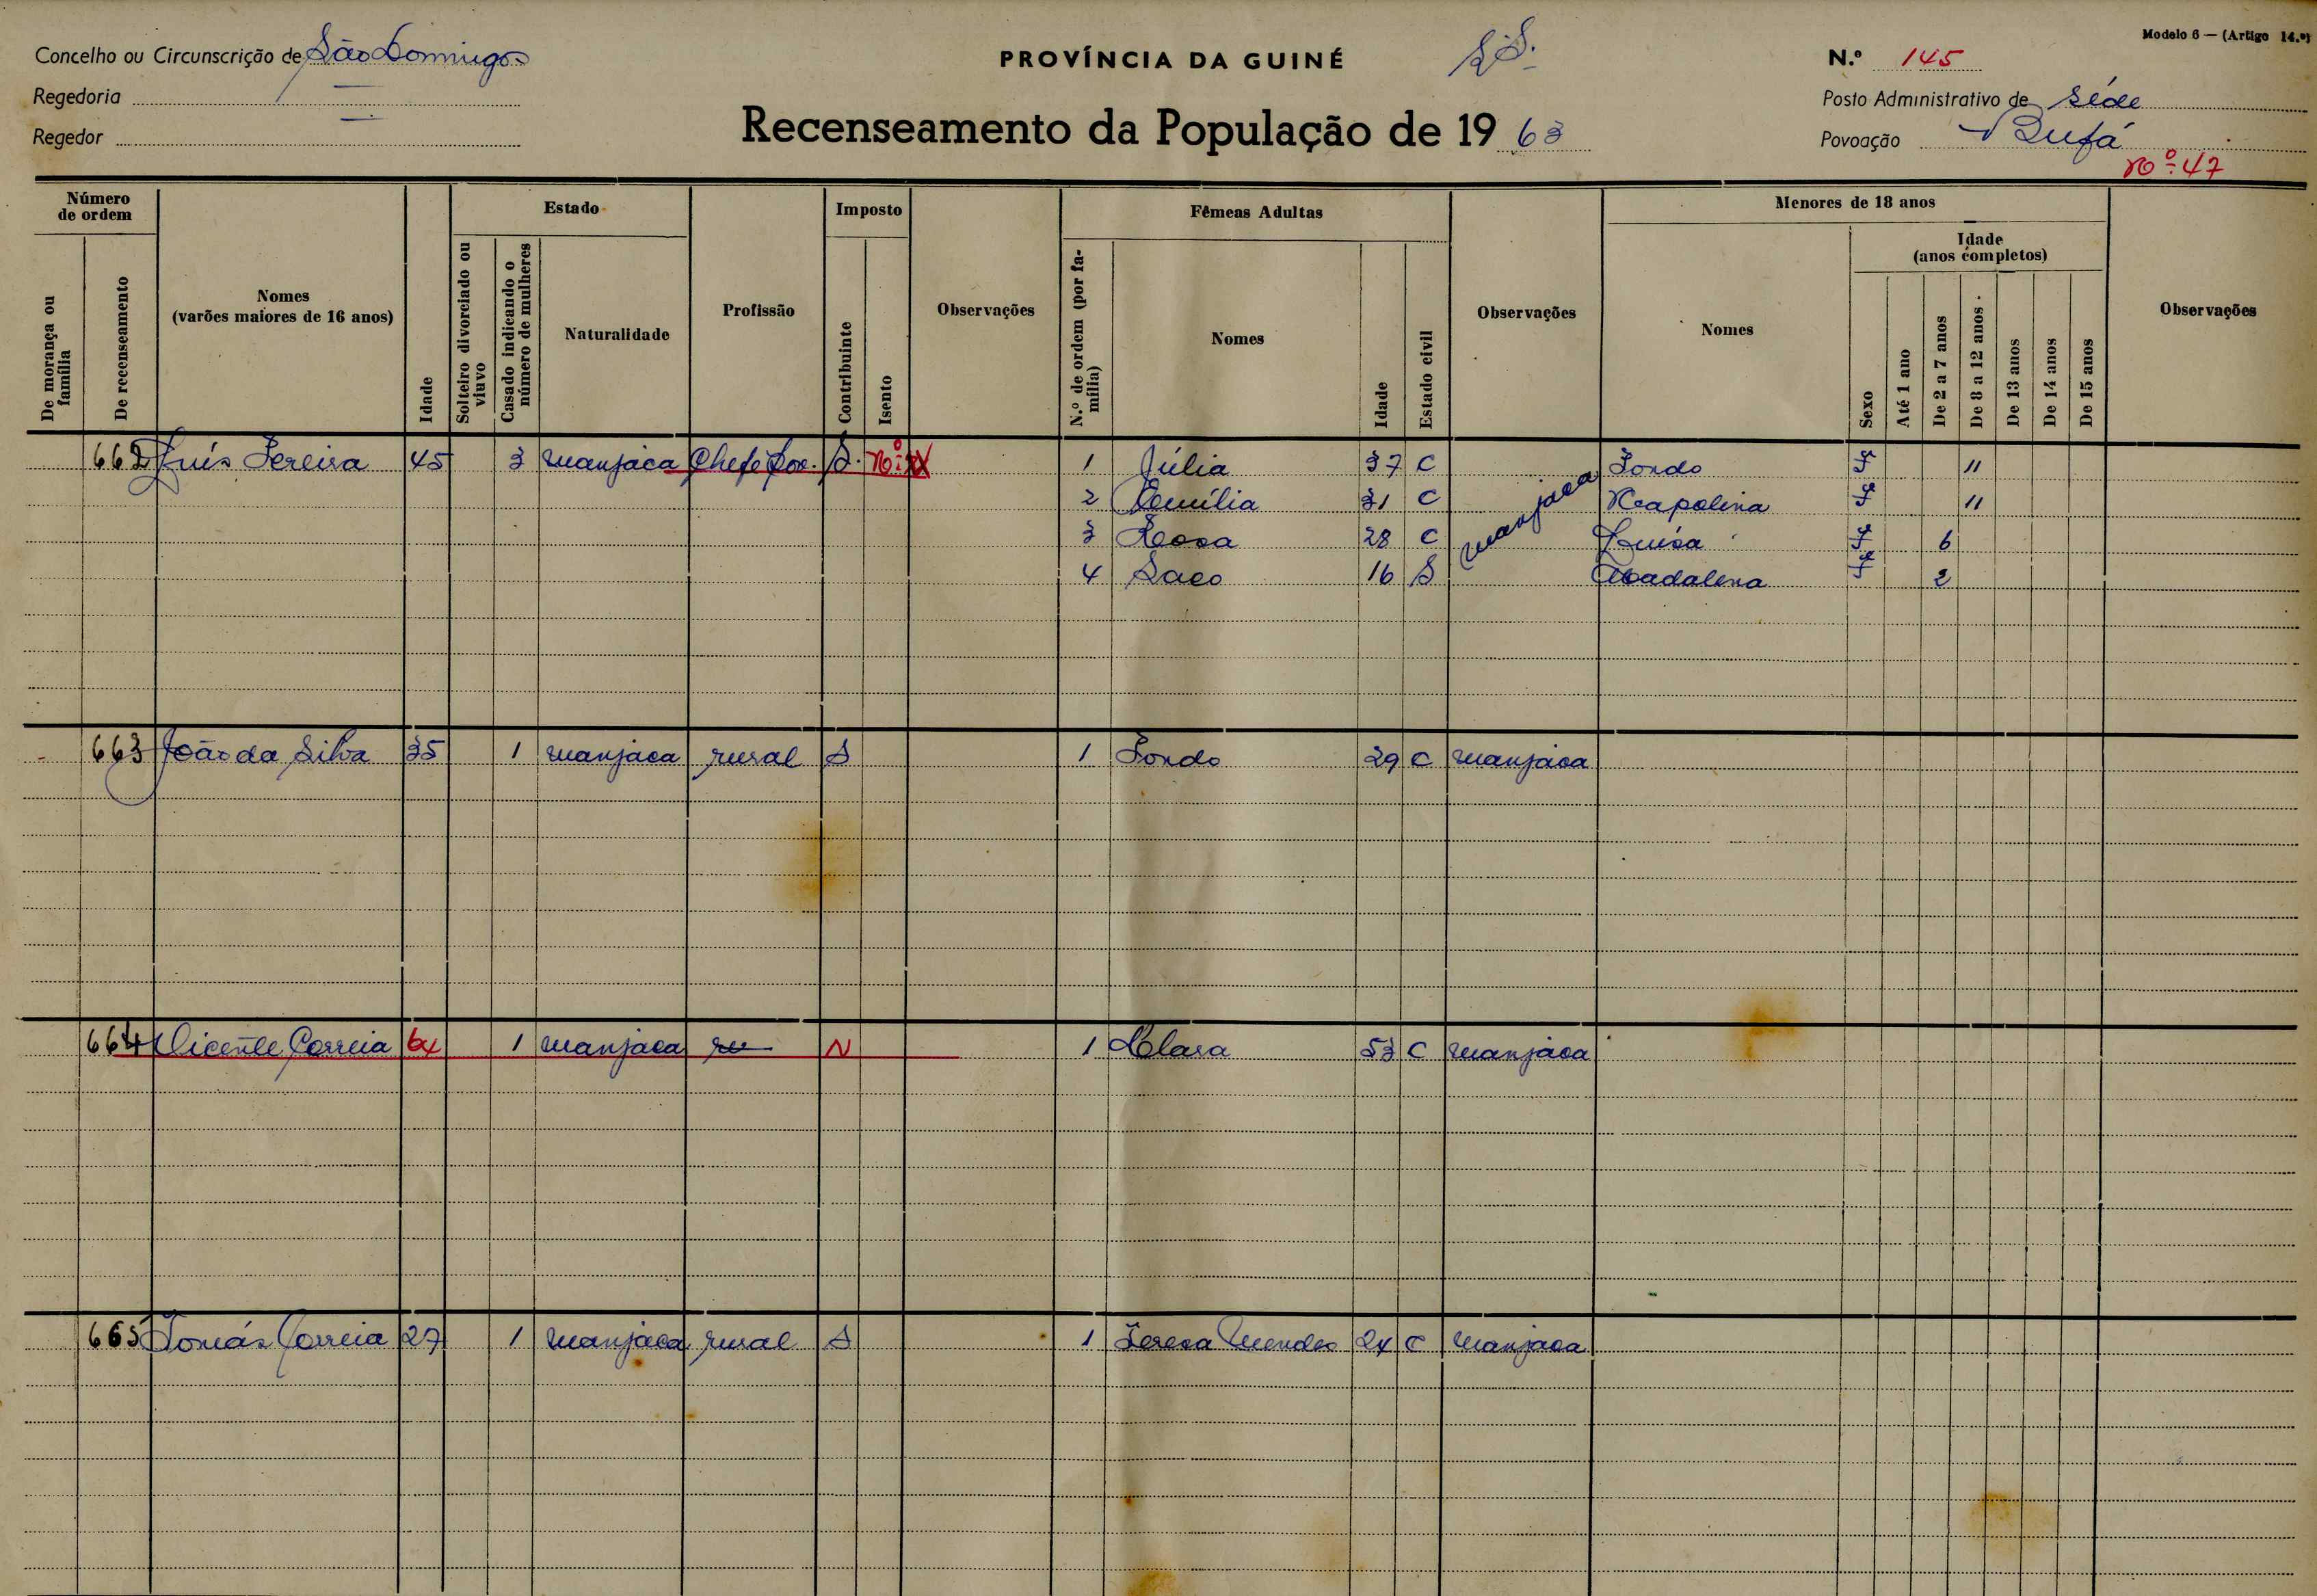 Modelo 6 — (Artigo 14.º)
Concelho ou Circunscrição de São Domingos PROVÍNCIA DA GUINÉ N.º 145
Regedoria — Posto Administrativo de Séde
Regedor — Recenseamento da População de 1963 Povoação Bufá
Nº 47
Número de ordem
De morança ou família
De recenseamento
Nomes (varões maiores de 16 anos)
Idade
Estado
Solteiro divorciado ou viuvo
Casado indicando o número de mulheres
Naturalidade
Profissão
Imposto
Contribuinte
Isento
Observações
Fêmeas Adultas
N.º de ordem (por família)
Nomes
Idade
Estado civil
Observações
Menores de 18 anos
Nomes
Sexo
Idade (anos completos)
Até 1 ano
De 2 a 7 anos
De 8 a 12 anos
De 13 anos
De 14 anos
De 15 anos
Observações
662 Luís Pereira 45 3 manjaca Chefe Pov. S. 1 Júlia 37 C manjaca Fondo F 11
2 Emília 31 C Napolina F 11
3 Rosa 28 C Luísa F 6
4 Saco 16 S Madalena F 2
663 João da Silva 35 1 manjaca rural S 1 Fondo 29 C manjaca
664 Vicente Correia 64 1 manjaca ru N 1 Clara 53 C manjaca
665 Tomás Correia 27 1 manjaca rural S 1 Teresa Mendes 24 C manjaca